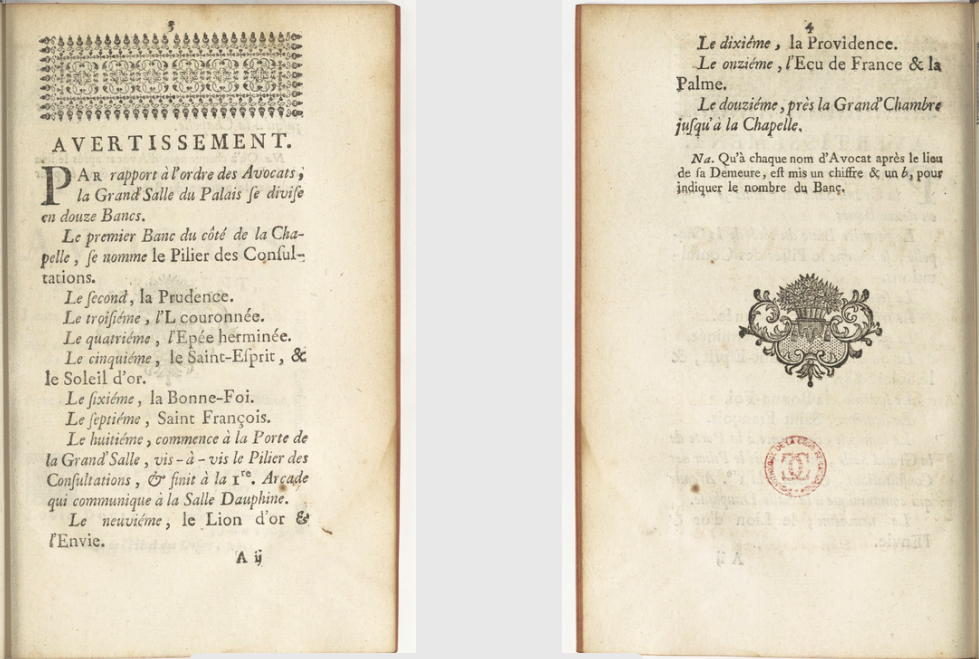 3
AVERTISSEMENT.
PAR rapport à l'ordre des Avocats,
la Grand'Salle du Palais ſe diviſe
en douze Bancs.
Le premier Banc du côté de la Cha-
pelle, ſe nomme le Pilier des Conſul-
tations.
Le ſecond, la Prudence.
Le troiſiéme, l'L couronnée.
Le quatriéme, l'Epée herminée.
Le cinquiéme, le Saint-Eſprit, &
le Soleil d'or.
Le ſixiéme, la Bonne-Foi.
Le ſeptiéme, Saint François.
Le huitiéme, commence à la Porte de
la Grand'Salle, vis-à-vis le Pilier des
Conſultations, & finit à la 1re. Arcade
qui communique à la Salle Dauphine.
Le neuviéme, le Lion d'or &
l'Envie.
A ij
4
Le dixiéme, la Providence.
Le onziéme, l'Ecu de France & la
Palme.
Le douziéme, près la Grand'Chambre
juſqu'à la Chapelle.
Na. Qu'à chaque nom d'Avocat après le lieu
de ſa Demeure, eſt mis un chiffre & un b, pour
indiquer le nombre du Banc.